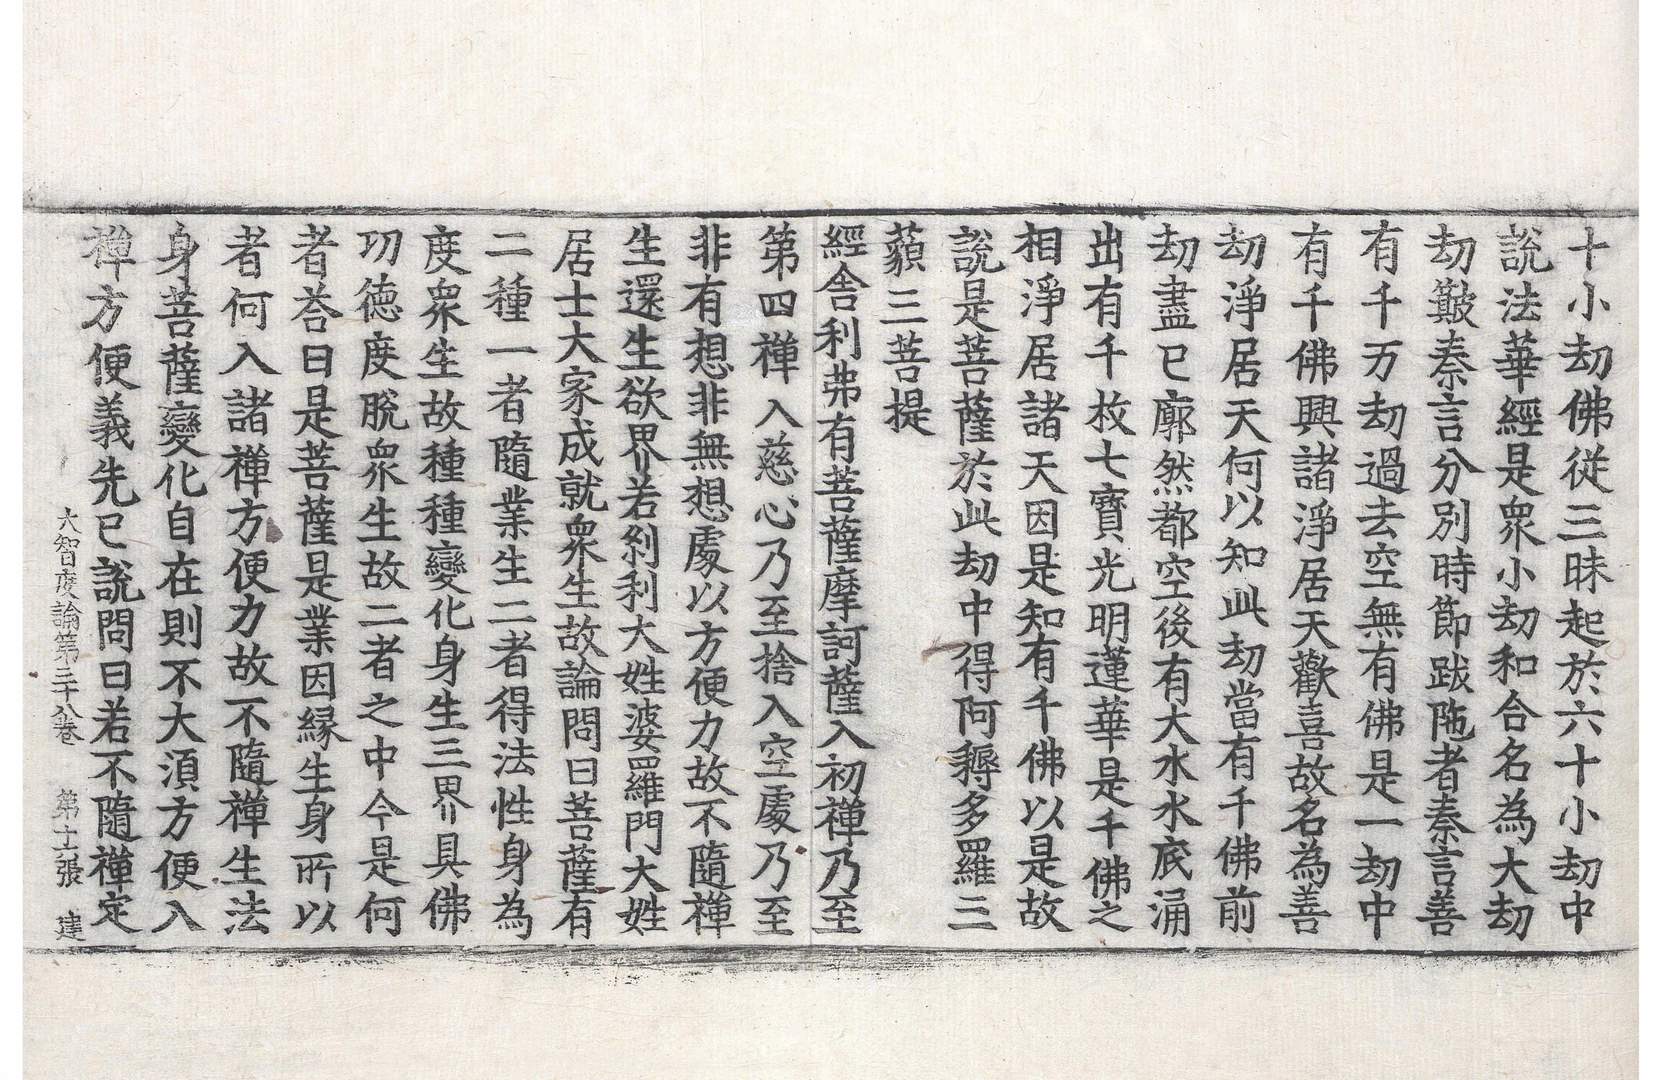 十小劫佛從三昧起於六十小劫中
說法華經是衆小劫和合名為大劫
劫簸秦言分別時節跋陁者秦言善
有千万劫過去空無有佛是一劫中
有千佛興諸淨居天歡喜故名為善
劫淨居天何以知此劫當有千佛前
劫盡已廓然都空後有大水水底涌
出有千枚七寶光明蓮華是千佛之
相淨居諸天因是知有千佛以是故
說是菩薩於此劫中得阿耨多羅三
藐三菩提
經舍利弗有菩薩摩訶薩入初禪乃至
第四禪入慈心乃至捨入空處乃至
非有想非無想處以方便力故不隨禪
生還生欲界若刹利大姓婆羅門大姓
居士大家成就衆生故論問曰菩薩有
二種一者隨業生二者得法性身為
度衆生故種種變化身生三界具佛
功德度脫衆生故二者之中今是何
者荅曰是菩薩是業因緣生身所以
者何入諸禪方便力故不隨禪生法
身菩薩變化自在則不大湏方便入
禪方便義先已說問曰若不隨禪定
大智度論第三十八卷　第十一張　建